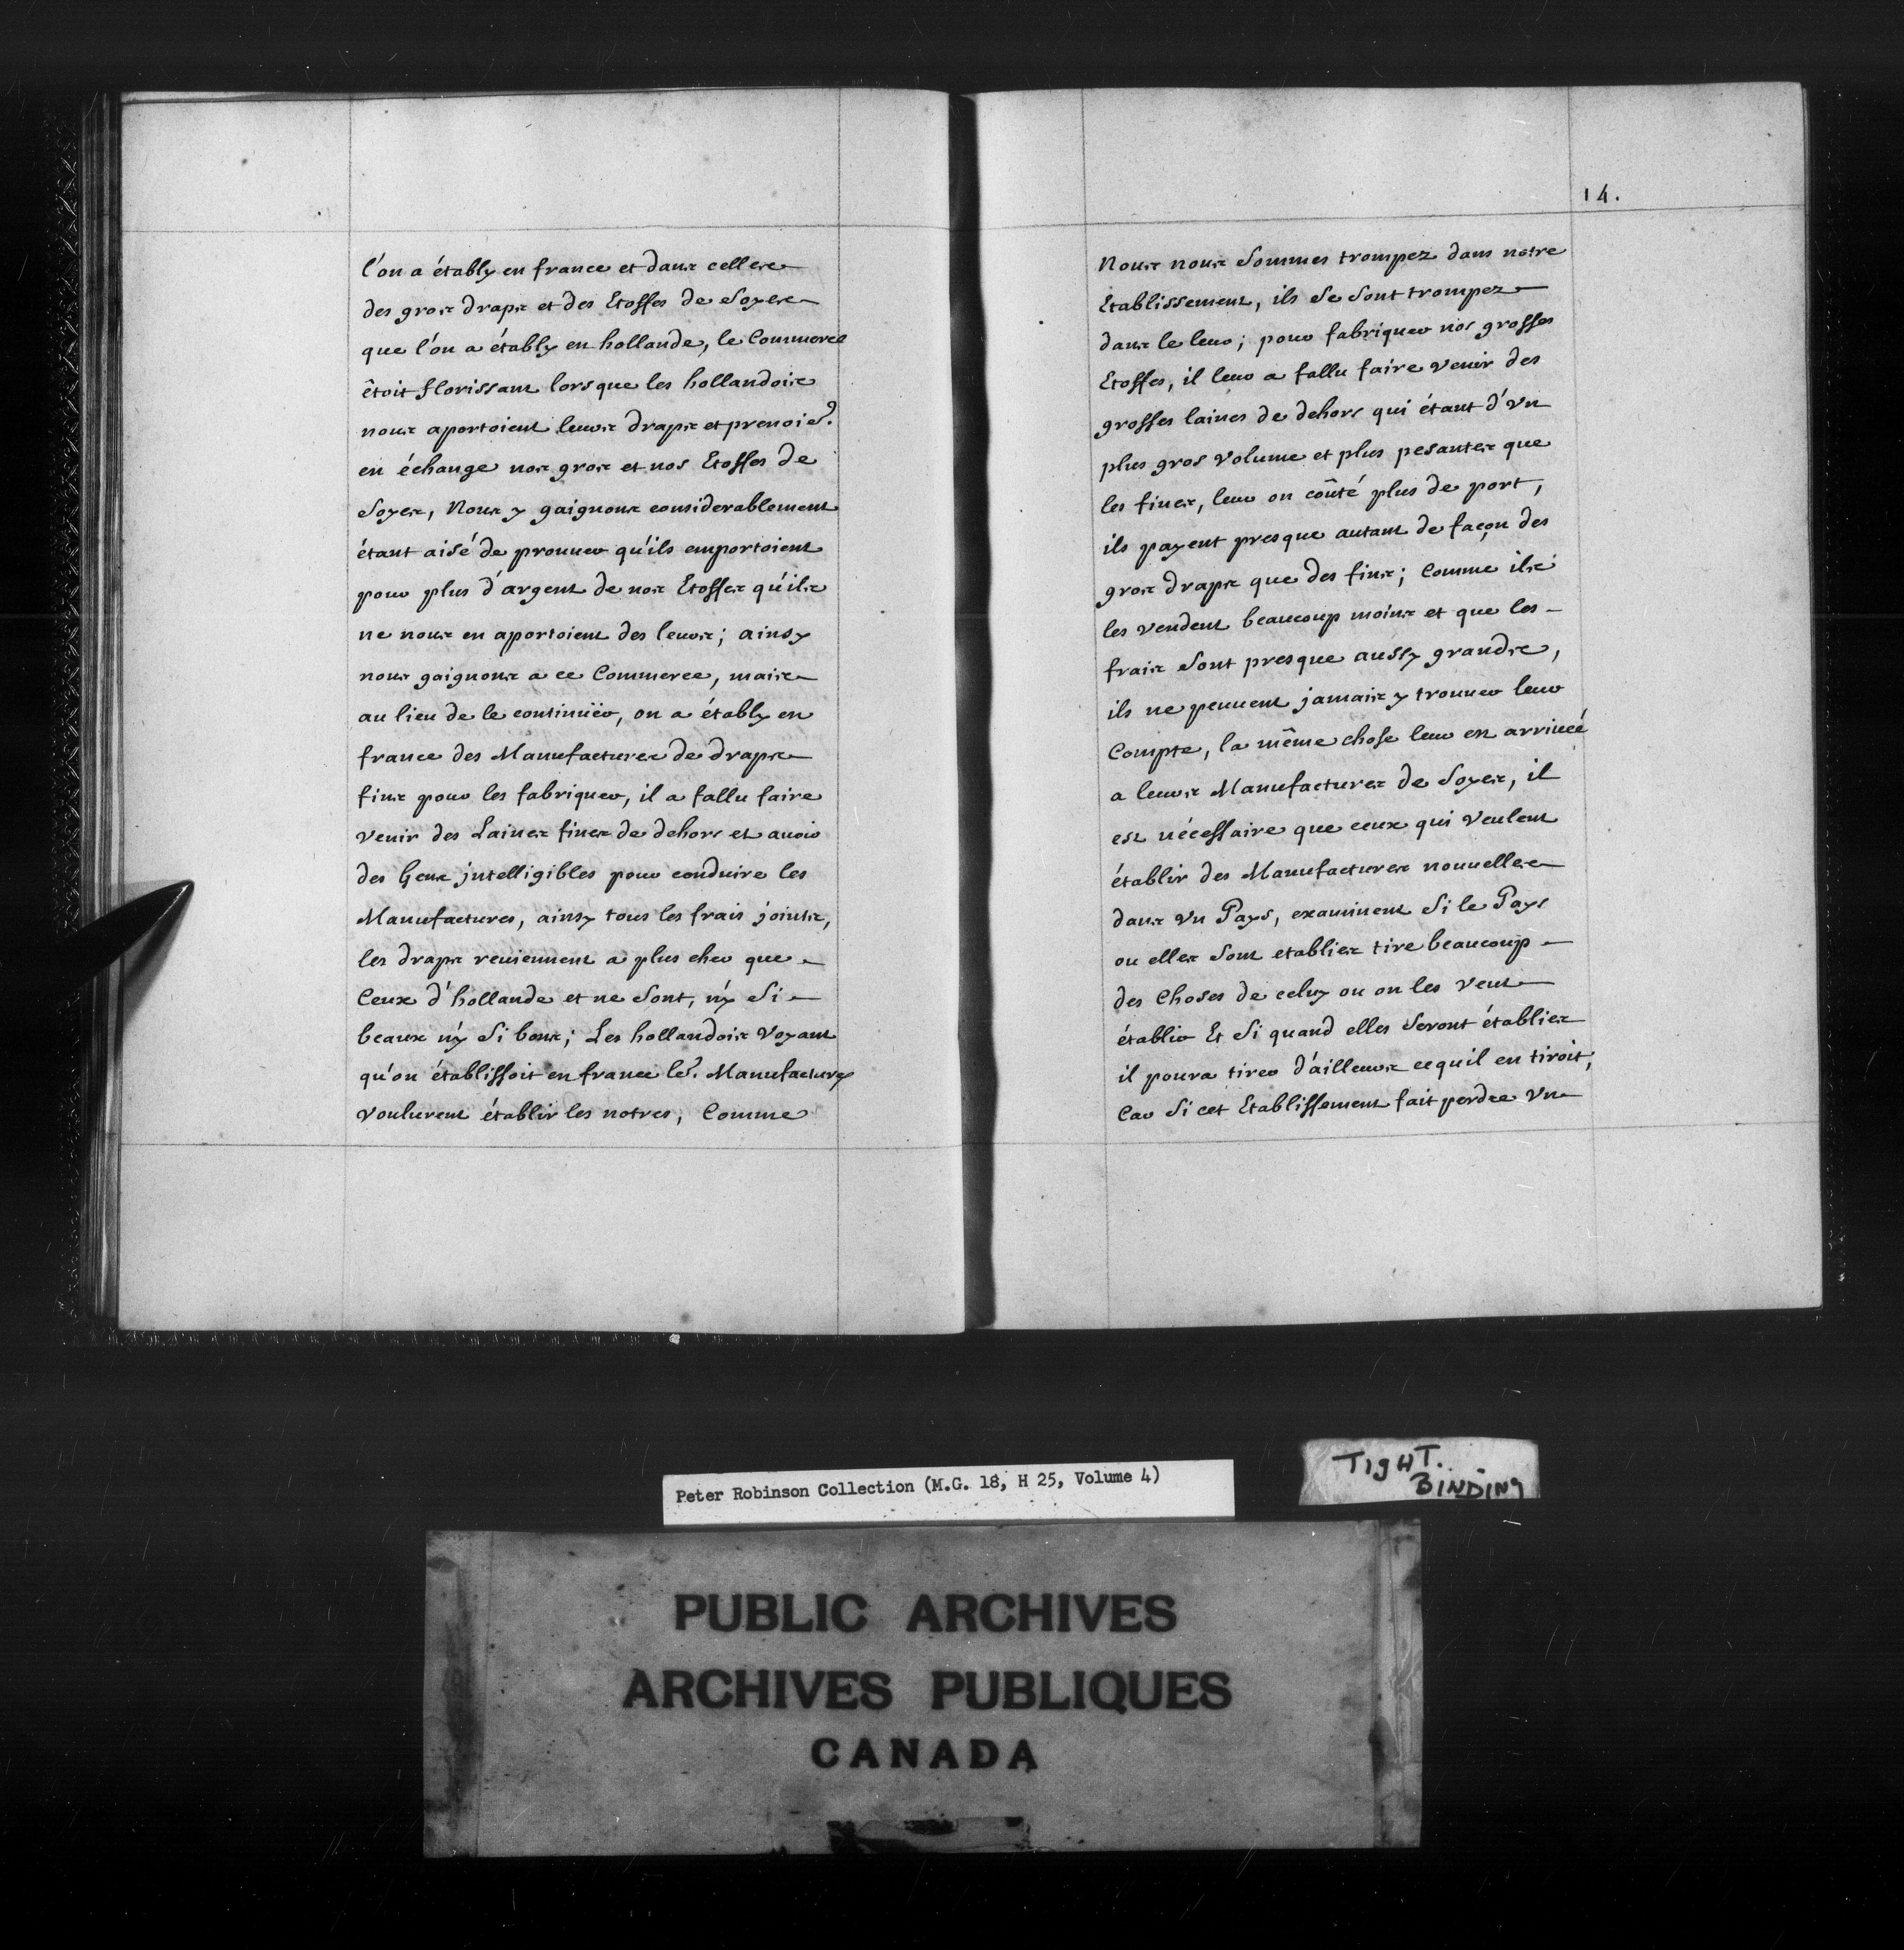 l'on a étably en france et dans celles
des gros draps et des Etoffes de Soyes
que l'on a étably en hollande, le Commerce
êtoit florissant lorsque les hollandois
nous aportoient leurs draps et prenoiẽt
en échange nos gros et nos Etoffes de
Soyes, Nous y gaignons considerablement
étant aisé de prouuer qu'ils emportoient
pour plus d'argent de nos Etoffes qu'ils
ne nous en aportoient des leurs; ainsy
nous gaignons a ce Commerce, mais
au lieu de le continüer, on a étably en
france des Manufactures de draps
fins pour les fabriquer, il a fallu faire
venir des Laines fines de dehors et auoir
des Gens jntelligibles pour conduire les
Manufactures, ainsy tous les frais joints,
les draps reuiennent a plus cher que
Ceux d'hollande et ne sont, n'y Si
beaux n'y Si bons; Les hollandois Voyant
qu'on établissoit en france leˢ. Manufactures
voulurent établir les notres, Comme
14.
Nous nous Sommes trompez dans notre
Etablissement, ils Se Sont trompez
dans le leur; pour fabriquer nos grosses
Etoffes, il leur a fallu faire venir des
grosses laines de dehors qui étant d'vn
plus gros volume et plus pesantes que
les fines, leur on coûté plus de port,
ils payent presque autant de façon des
gros draps que des fins; Comme ils
les vendent beaucoup moins et que les
frais Sont presque aussy grands,
ils ne peuuent jamais y trouuer leur
Compte, la même chose leur est arriueé
a leurs Manufactures de Soyes, il
est nécessaire que ceux qui veulent
établir des Manufactures nouuelles
dans vn Pays, examinent Si le Pays
ou elles Sont etablies tire beaucoup
des Choses de celuy ou on les veut
établir Et Si quand elles Seront établies
il poura tirer d'ailleurs cequil en tiroit,
Car Si cet Etablissement fait perdre vn
Peter Robinson Collection (M.G. 18, H 25, Volume 4)
TIGHT.
BINDING
PUBLIC ARCHIVES
ARCHIVES PUBLIQUES
CANADA